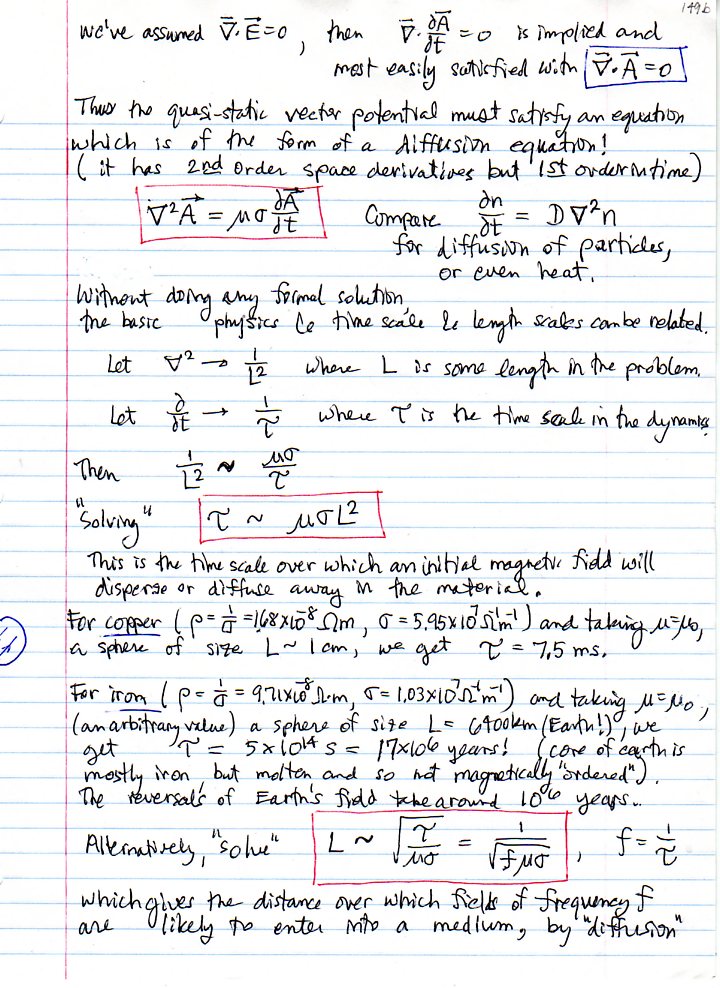 149b
we've assumed ∇⃗·E⃗=0, then ∇⃗·∂A⃗/∂t = 0 is implied and
most easily satisfied with ∇⃗·A⃗=0
Thus the quasi-static vector potential must satisfy an equation
which is of the form of a diffusion equation!
(it has 2nd order space derivatives but 1st order in time)
∇²A⃗ = μσ ∂A⃗/∂t Compare ∂n/∂t = D∇²n
for diffusion of particles,
or even heat.
Without doing any formal solution,
the basic physics ie time scale & length scales can be related.
Let ∇² → 1/L² where L is some length in the problem.
Let ∂/∂t → 1/τ where τ is the time scale in the dynamics
Then 1/L² ~ μσ/τ
"Solving" τ ~ μσL²
This is the time scale over which an initial magnetic field will
disperse or diffuse away in the material.
For copper (ρ = 1/σ = 1.68×10⁻⁸ Ωm, σ = 5.95×10⁷ Ω⁻¹m⁻¹) and taking μ=μ₀,
a sphere of size L~1cm, we get τ = 7.5 ms.
For iron (ρ = 1/σ = 9.71×10⁻⁸ Ω·m, σ = 1.03×10⁷ Ω⁻¹m⁻¹) and taking μ=μ₀,
(an arbitrary value) a sphere of size L = 6400km (Earth!), we
get τ = 5×10¹⁴ s = 17×10⁶ years! (core of earth is
mostly iron, but molten and so not magnetically "ordered").
The reversals of Earth's field take around 10⁶ years..
Alternatively, "solve" L ~ √(τ/μσ) = 1/√(fμσ), f = 1/τ
which gives the distance over which fields of frequency f
are likely to enter into a medium, by "diffusion"